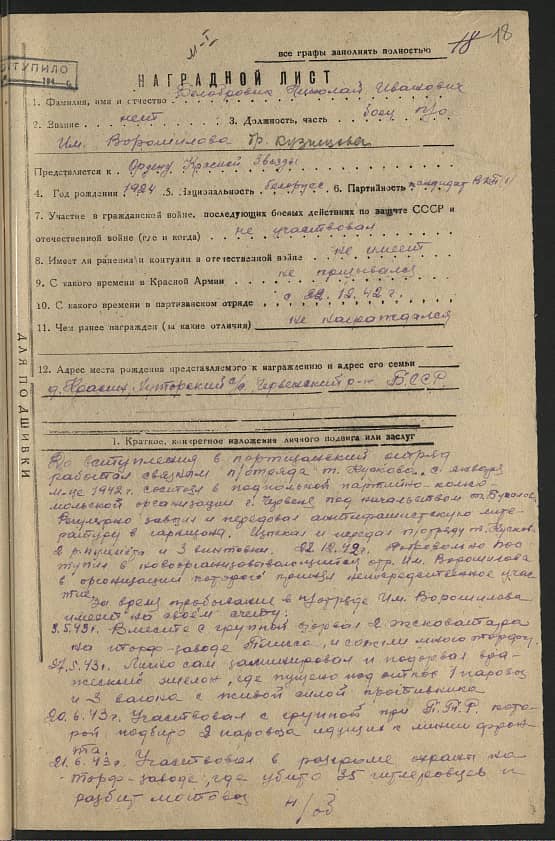 18
М-I
все графы заполнять полностью
ПОСТУПИЛО
НАГРАДНОЙ ЛИСТ
1. Фамилия, имя и отчество Николай Иванович
2. Звание нет 3. Должность, часть боец п/о
Им. Ворошилова бр. Кузнецова
Представляется к Ордену Красной Звезды
4. Год рождения 1924 5. Национальность белорус 6. Партийность кандидат ВКП(б)
7. Участие в гражданской войне, последующих боевых действиях по защите СССР и
отечественной войне (где и когда) не участвовал
8. Имеет ли ранения и контузии в отечественной войне не имеет
9. С какого времени в Красной Армии не призывался
10. С какого времени в партизанском отряде с 22.12.42 г.
11. Чем ранее награжден (за какие отличия) не награждался
12. Адрес места рождения представляемого к награждению и адрес его семьи
д. с/с, Червенский р-н БССР.
ДЛЯ ПОДШИВКИ
1. Краткое, конкретное изложение личного подвига или заслуг
До вступления в партизанский отряд
работал связным п/отряда т. с января
м-ца 1942 г. состоял в подпольной партийно-комсо-
мольской организации г. Червене под начальством т.
Регулярно завозил и передавал антифашистскую лите-
ратуру в гарнизон. и передал п/отряду т.
2 и 3 винтовки. 22.12.42 г. пос-
тупил в новоорганизовывающийся отр. Им. Ворошилова
в организации которого принял непосредственное учас-
тие.
За время пребывания в п/отряде Им. Ворошилова
имеет на своём счету:
3.5.43 г. Вместе с группой взорвал 2 экскаватора
на торф-заводе и сожгли много торфу.
27.5.43 г. Лично сам заминировал и подорвал вра-
жеский эшелон, где пущено под откос 1 паровоз
и 3 вагона с живой силой противника
20.6.43 г. Участвовал с группой при П.Т.Р. кото-
рой подбито 2 паровоза идущих с линии фрон-
та.
21.6.43 г. Участвовал в разгроме охраны на
торф-заводе, где убито 35 гитлеровцев и
разбит